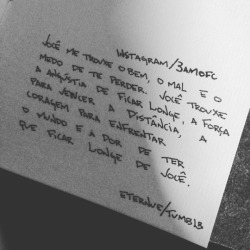 INSTAGRAM/3AMOFC
VOCÊ ME TROUXE O BEM, O MAL E O
MEDO DE TE PERDER. VOCÊ TROUXE
A ANGÚSTIA DE FICAR LONGE, A FORÇA
PARA VENCER A DISTÂNCIA, A
CORAGEM PARA ENFRENTAR
O MUNDO E A DOR DE TER
QUE FICAR LONGE DE VOCÊ.